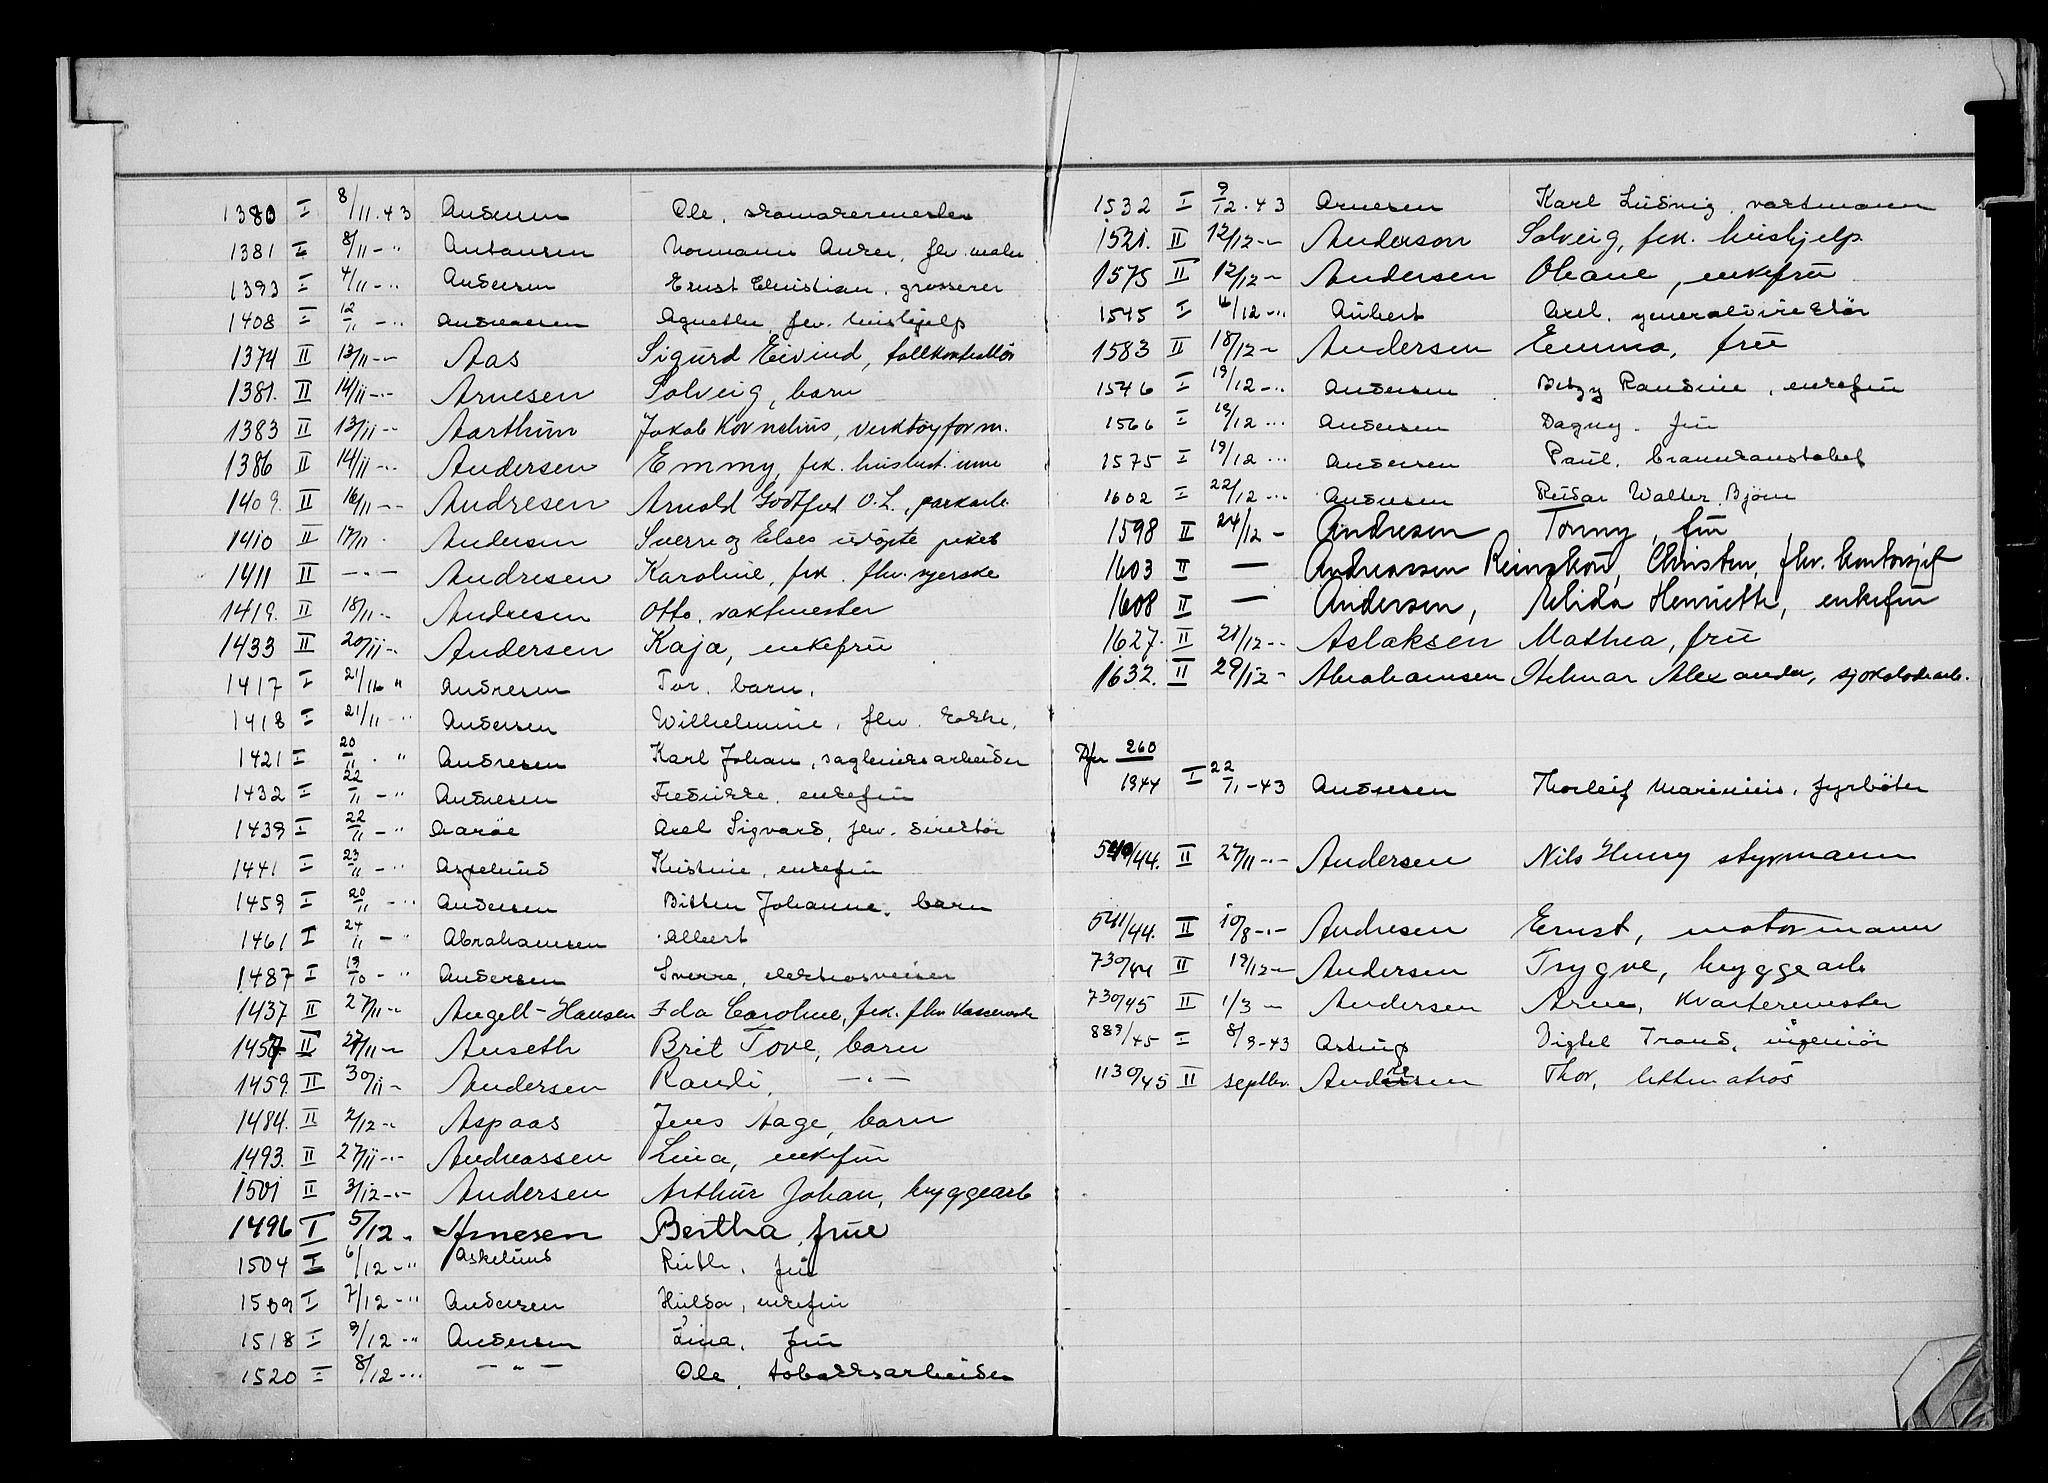 1380 I 8/11.43 Andersen Ole, skomakermester
1381 I 8/11 -" Antonsen Normann Anker, fhv. maler
1393 I 4/11 -" Andersen Ernst Christian, grosserer
1408 I 12/11 -" Andreassen Agnethe, fhv. hushjelp
1374 II 13/11 -" Aas Sigurd Eivind, tollkontrollör
1381. II 14/11 -"- Arnesen Solveig, barn
1383 II 13/11 -" Aarthun Jakob Kornelius, verktøyform.
1386 II 14/11 -" Andersen Emmy, frk.
1409. II 16/11 -" Andresen Arnold Godtfred O.L., parkarb.
1410 II 17/11 " Andersen Sverre og Elses udöpte pikeb
1411 II -"- Andresen Karoline, frk. fhv. syerske
1419. II 18/11 -" Andresen Otto, vaktmester
1433 II 20/11 -" Andersen Kaja, enkefru
1417 I 21/11 " Andresen Tor, barn,
1418 I 21/11 -" Andersen Wilhelmine, fhv. kokke,
1421 I 20/11 . " Andresen Karl Johan, sagbruksarbeider
1432 I 22/11 -" Andresen Fredrikke, enkefru
1439 I 22/11 -" Aaröe Axel Sigvard, fhv. direktör
1441 I 23/11 -" Aspelund Kristine, enkefru
1459 I 20/11 -" Andersen Bitten Johanne, barn
1461 I 24/11 -" Abrahamsen Albert
1487 I 19/10 -" Andersen Sverre, elektrosveiser
1437 II 27/11 -" Angell-Hansen Ida Caroline, frk. fhv kassererske
1457 II 27/11 -" Anseth Brit Tove, barn
1459. II 30/11 - Andersen Randi, -"-
1484. II 2/12 -" Aspaas Jens Aage, barn
1493. II 27/11 -"- Andreassen Lina, enkefru
1501 II 3/12 -"- Andersen Arthur Johan, bryggearb
1496 I 5/12 " Arnesen Bertha, frue
1504 I 6/12 -" Askelund Ruth, fru
1509 I 7/12 -" Andersen Hulda, enkefru
1518 I 9/12 -" Andersen Lina, fru
1520 I 8/12 -" - " - Ole, tobakksarbeider
1532 I 9/12.43 Arnesen Karl Ludvig, vaktmann
1521. II 12/12 -" Anderson Solveig, frk. hushjelp
1575 II 12/12 -" Andersen Oleane, enkefru
1545 I 16/12 -" Aubert Axel, generaldirektör
1583 II 18/12 -" Andersen Emma, fru
1546 I 19/12 -" Andersen Betzy Randine, enkefru
1566 I 19/12 -" Andersen Dagny, fru
1575 I 19/12 -" Andersen Paul, brannkonstabel
1602 I 22/12 -" Andersen Reidar Walter Björn
1598 II 24/12 - Andresen Tonny, fru
1603 II — Andreassen Reinskou, Christen, fhv. kontorsjef
1608 II — Andersen, Elida Henriette, enkefru
1627. II 28/12 -" Aslaksen Mathea, fru
1632. II 29/12 - Abrahamsen Hilmar Alexander, sjokoladearb.
260
1944 I 22/11-43 Andresen Thorleif Marinius, fyrböter
540/44. II 27/11 -"- Andersen Nils Henry styrmann
541/44. II 10/8 -"- Andresen Ernst, motormann
730/44 II 19/12 -" Andersen Trygve, bryggearb
730/45 II 1/3 -" Andersen Arne, kvartermester
889/45 I 8/9-43 Astrup Vigtel Trond, ingeniör
1130/45 II septbr. Andersen Thor, lettmatros